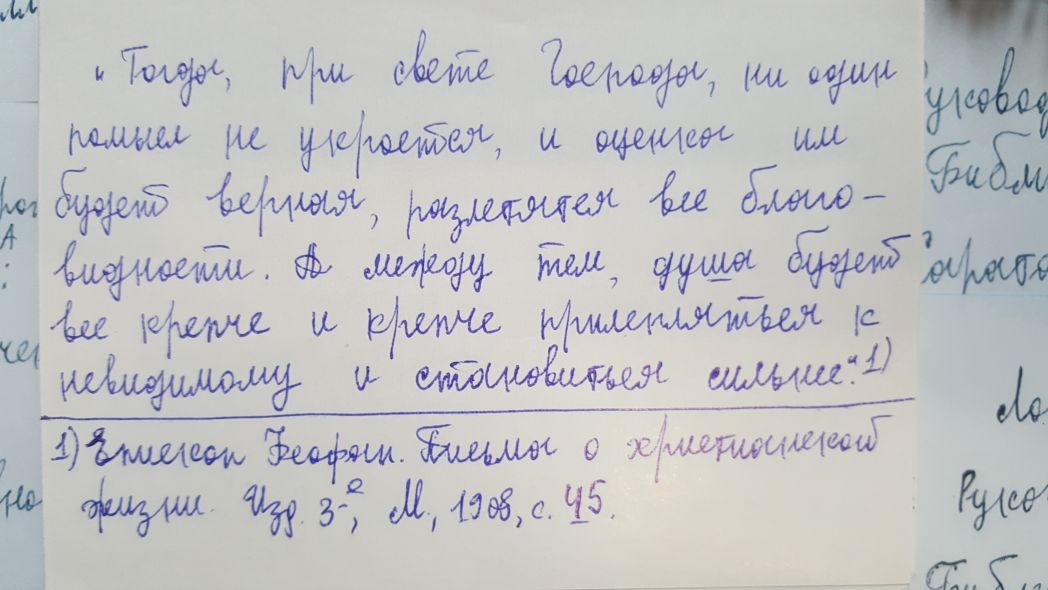 „Тогда, при свете Господа, ни один
помысл не укроется, и оценка им
будет верная, разлетятся все благо-
видности. А между тем, душа будет
все крепче и крепче прилепляться к
невидимому и становиться сильнее“. 1)
1) Епископ Феофан. Письма о христианской
жизни. Изд. 3-е, М., 1908, с. 45.
Руковод
Библи
Сарато
Ло
Руко
Библ